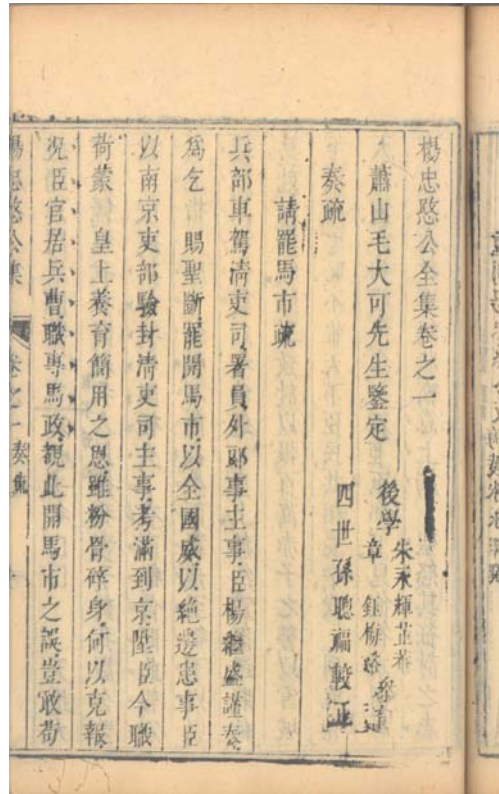 楊忠愍公全集卷之一
蕭山毛大可先生鑒定
後學
朱永輝芷菴
章鈺梅谿
叅訂
四世孫聰福較正
奏疏
請罷馬市疏
兵部車駕清吏司署員外郎事主事臣楊繼盛謹奏
爲乞 賜聖斷罷開馬市以全國威以絶邊患事臣
以南京吏部驗封清吏司主事考滿到京陞臣今職
荷蒙 皇上養育簡用之恩雖粉骨碎身何以克報
況臣官居兵曹職專馬政覩此開馬市之誤豈敢苟
楊忠愍公集 卷之一奏疏